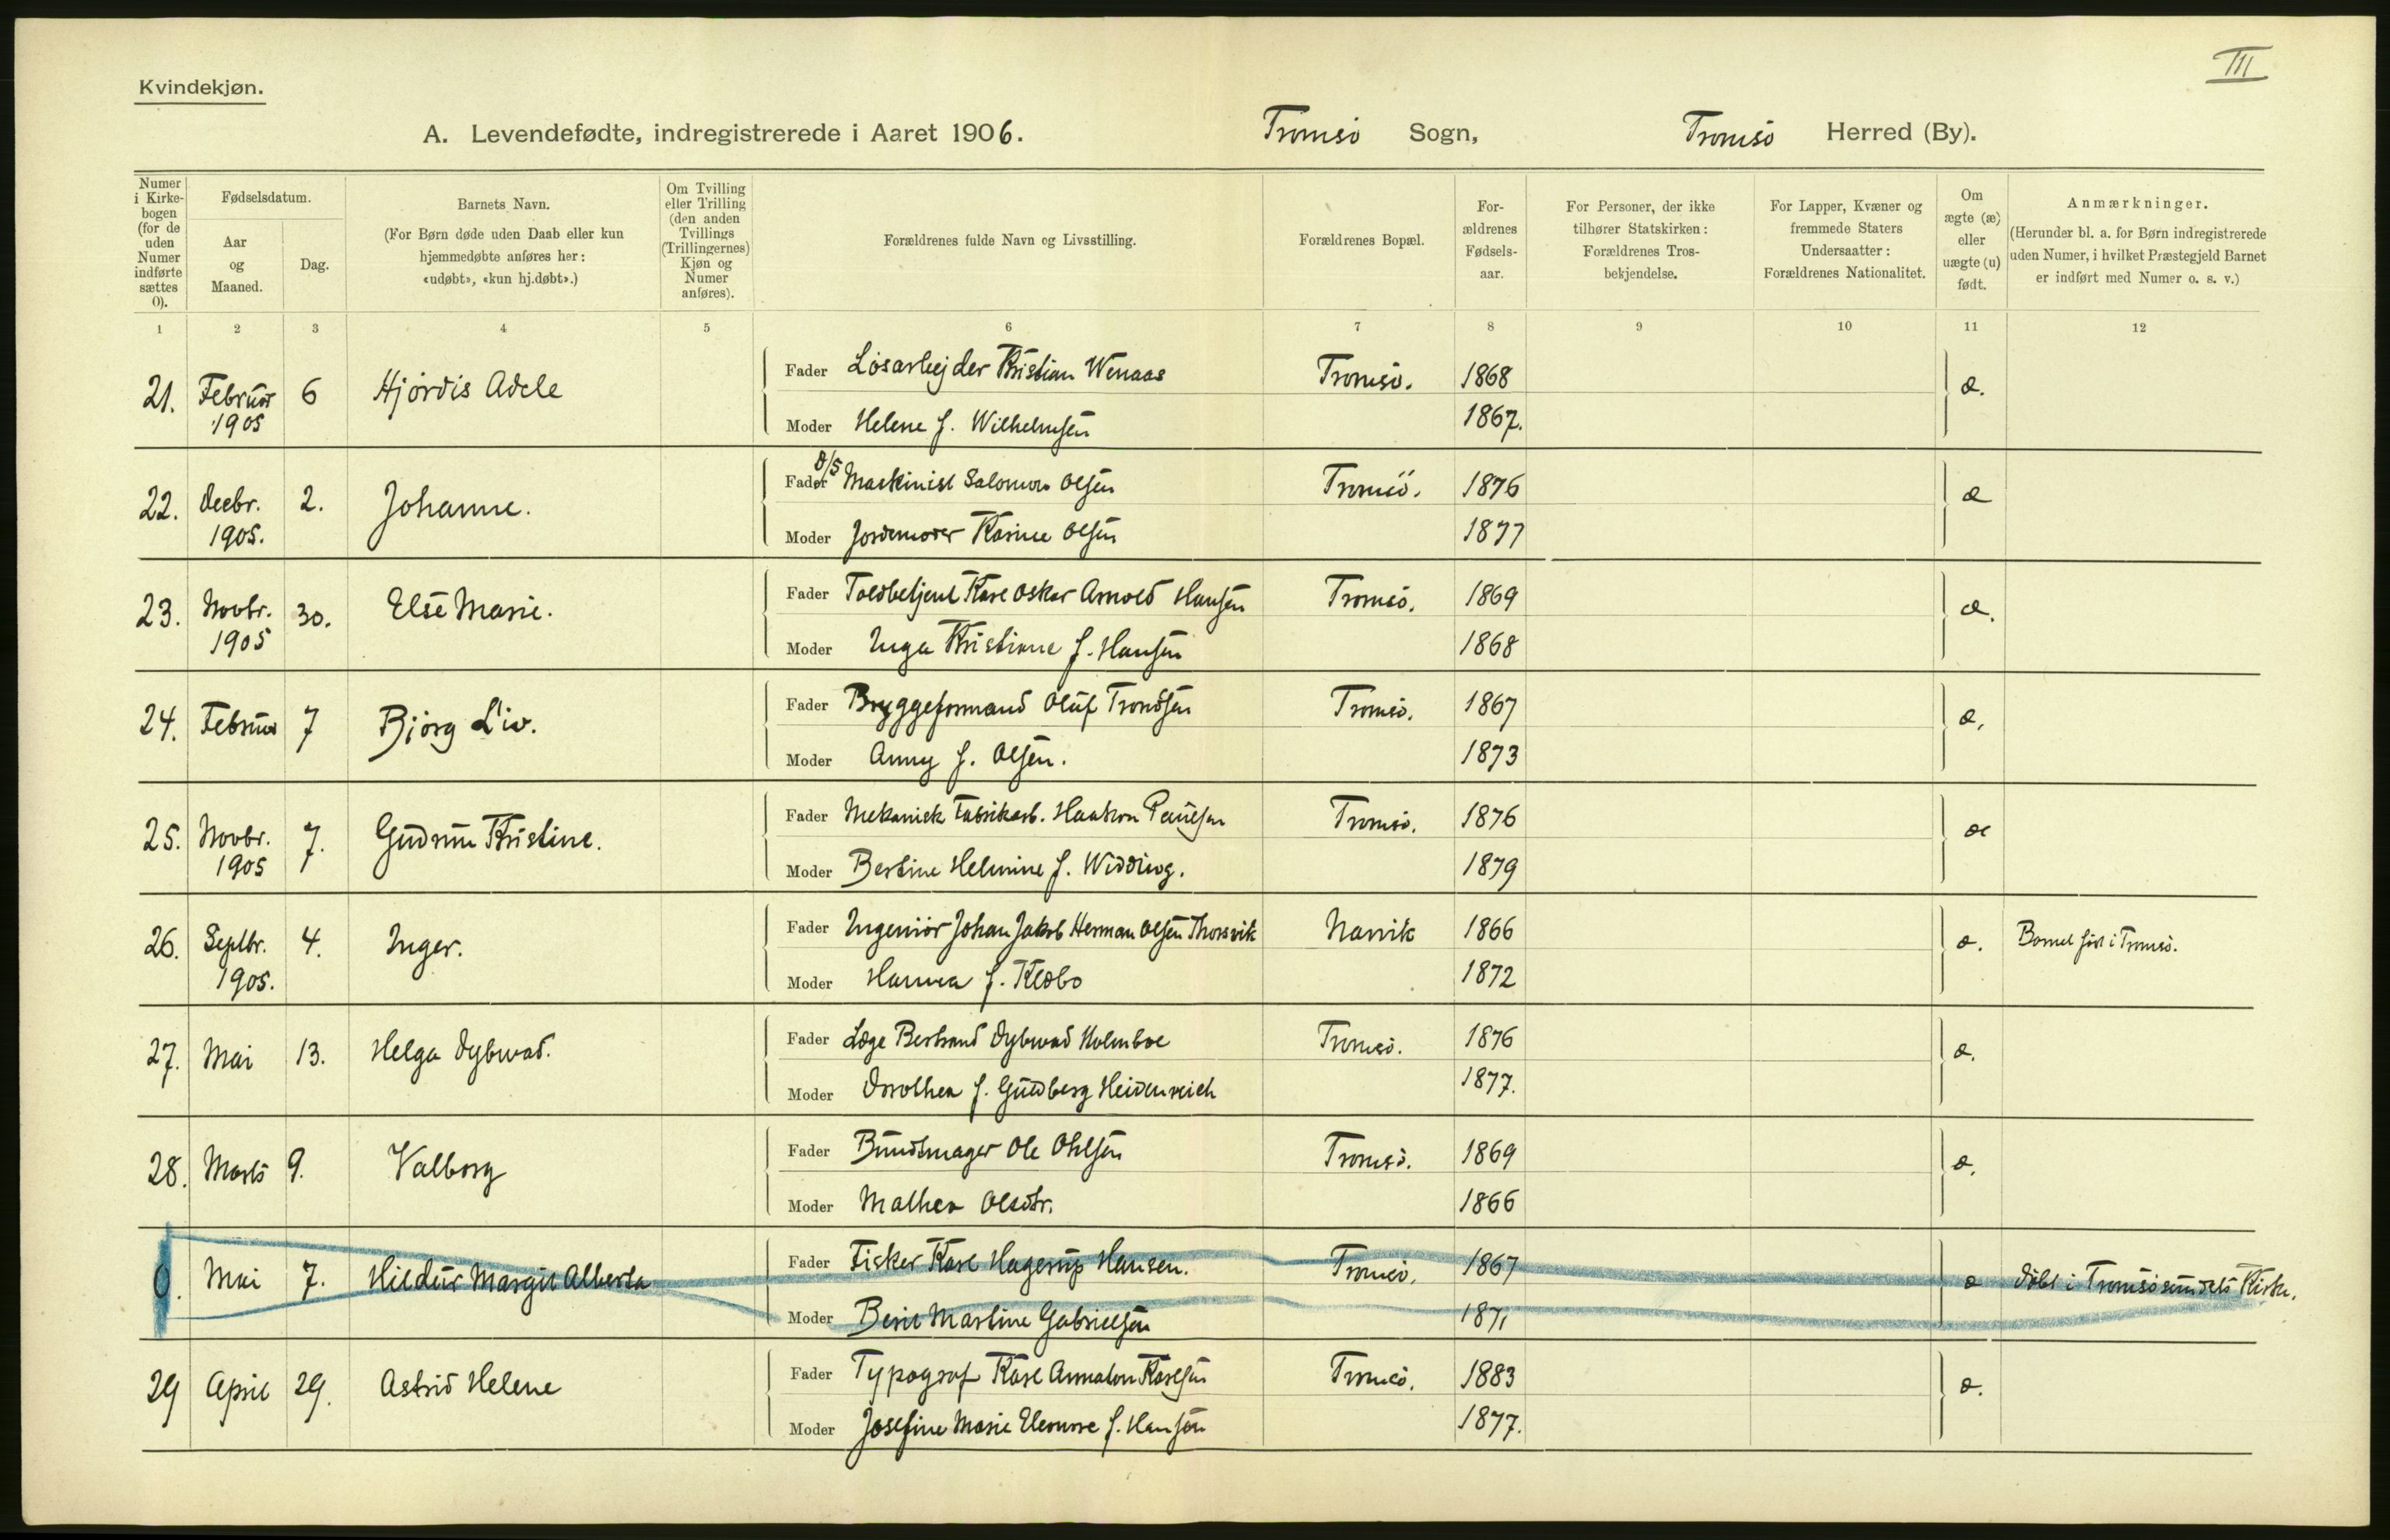 III
Kvindekjøn.
A. Levendefødte, indregistrerede i Aaret 1906. Tromsö Sogn, Tromsö Herred (By).
Numer i Kirkebogen (for de uden Numer indførte sættes 0).
Fødselsdatum.
Aar og Maaned.
Dag.
Barnets Navn.
(For Børn døde uden Daab eller kun hjemmedøbte anføres her: «udøbt», «kun hj.døbt».)
Om Tvilling eller Trilling (den anden Tvillings (Trillingernes) Kjøn og Numer anføres).
Forældrenes fulde Navn og Livsstilling.
Forældrenes Bopæl.
For-ældrenes Fødsels-aar.
For Personer, der ikke tilhører Statskirken: Forældrenes Tros-bekjendelse.
For Lapper, Kvæner og fremmede Staters Undersaatter: Forældrenes Nationalitet.
Om ægte (æ) eller uægte (u) født.
Anmærkninger.
(Herunder bl. a. for Børn indregistrerede uden Numer, i hvilket Præstegjeld Barnet er indført med Numer o. s. v.)
1 2 3 4 5 6 7 8 9 10 11 12
21. Februar 1905 6 Hjördis Adele Fader Lösarbejder Kristian Wenaas Tromsö. 1868 æ.
Moder Helene f. Wilhelmsen 1867.
22. Decbr. 1905. 2. Johanne. Fader D/S Maskinist Salomon Olsen Tromsö. 1876 æ
Moder Jordemoder Kasine Olsen 1877
23. Novbr. 1905 30. Else Marie. Fader Toldbetjent Karl Oskar Arnold Hansen Tromsö. 1869 æ.
Moder Inga Kristiane f. Hansen 1868
24. Februar 7 Björg Liv. Fader Bryggeformand Oluf Trondsen Tromsö. 1867 æ.
Moder Anny f. Olsen. 1873
25. Novbr. 1905 7. Gudrun Kristine. Fader Mekanisk Fabrikarb. Haakon Paulsen Tromsö. 1876 æ
Moder Bertine Helmine f. Widding. 1879
26. Septbr. 1905. 4. Inger. Fader Ingeniör Johan Jakob Herman Olsen Thorsvik Narvik 1866 æ. Barnet föd i Tromsö.
Moder Hanna f. Kldbo 1872
27. Mai 13. Helga Dybwad. Fader Læge Bertrand Dybwad Holmboe Tromsö. 1876 æ.
Moder Dorothea f. Guldberg Heidenreich 1877.
28. Marts 9. Valborg Fader Bundtmager Ole Ohlsen Tromsö. 1869 æ.
Moder Mathea Olsdtr. 1866
0. Mai 7. Hildur Margit Alberta Fader Fisker Karl Hagerup Hansen. Tromsö. 1867 æ döbt i Tromsösundets Kirke.
Moder Berit Martine Gabrielsen 1871
29 April 29. Astrid Helene Fader Typograf Karl Annaton Karlsen Tromsö. 1883 æ.
Moder Josefine Marie Elenore f. Hansen 1877.